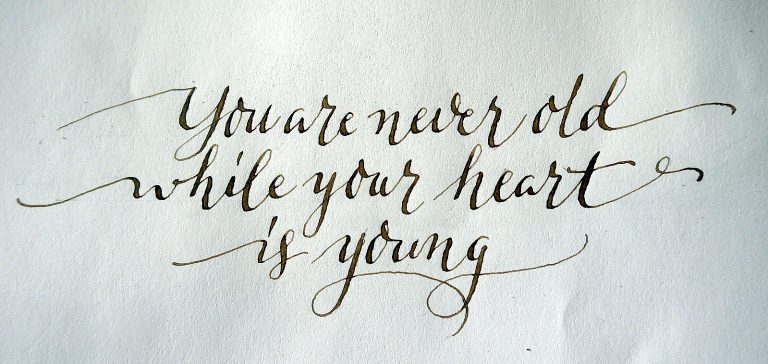 You are never old
while your heart
is young